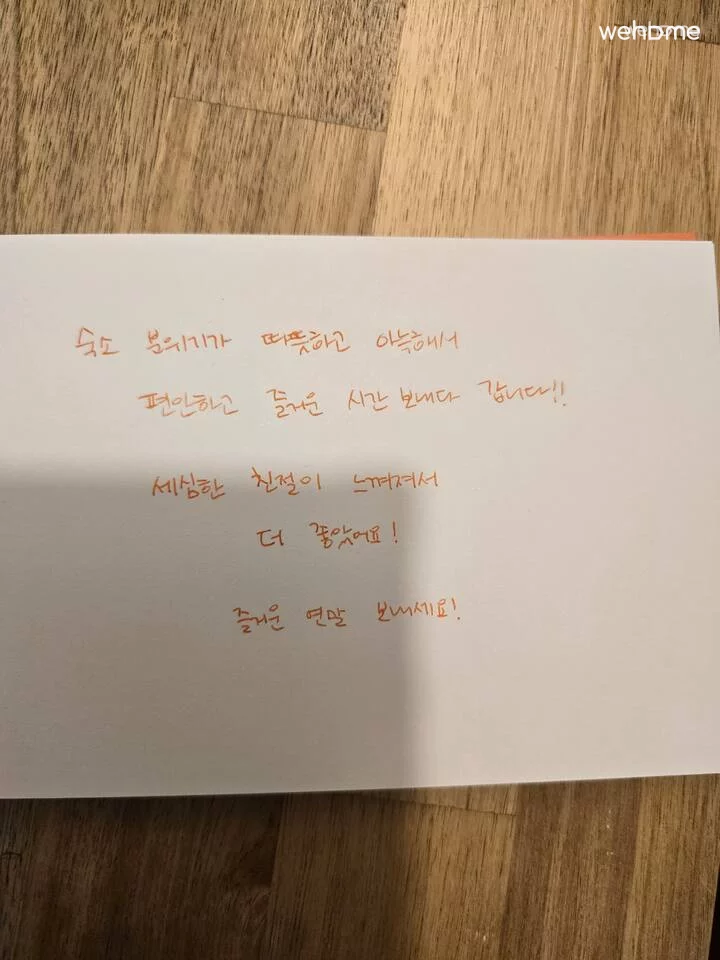 wehome
숙소 분위기가 따뜻하고 아늑해서
편안하고 즐거운 시간 보내다 갑니다!!
세심한 친절이 느껴져서
더 좋았어요!
즐거운 연말 보내세요!